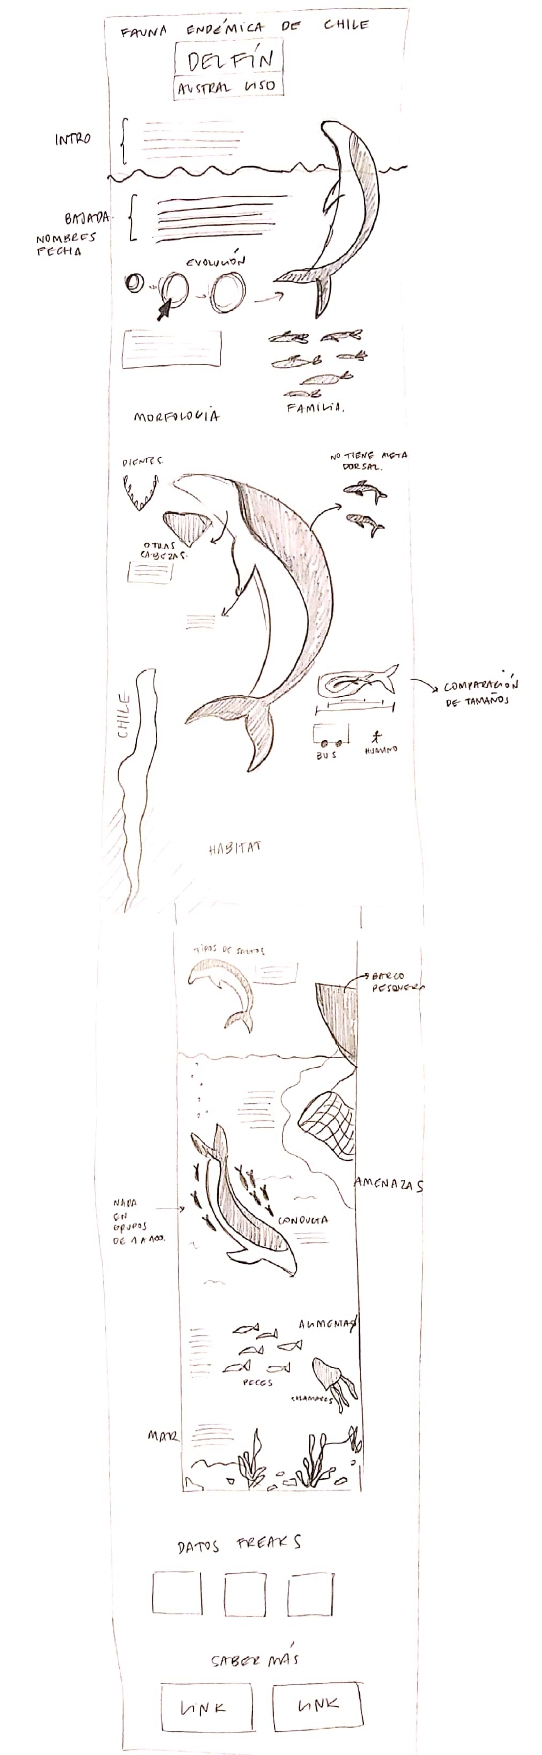 FAUNA ENDÉMICA DE CHILE
DELFÍN
AUSTRAL LISO
INTRO
BAJADA
NOMBRES
FECHA
EVOLUCIÓN
FAMILIA.
MORFOLOGÍA
DIENTES
NO TIENE ALETA
DORSAL.
OTRAS
CABEZAS.
CHILE
COMPARACIÓN
DE TAMAÑOS
BUS
HUMANO
HABITAT
TIPOS DE SALTOS
BARCO
PESQUERO
AMENAZAS
NADA
EN
GRUPOS
DE 1 A 100.
CONDUCTA
PECES
CALAMARES
MAR
DATOS FREAKS
SABER MÁS
LINK
LINK